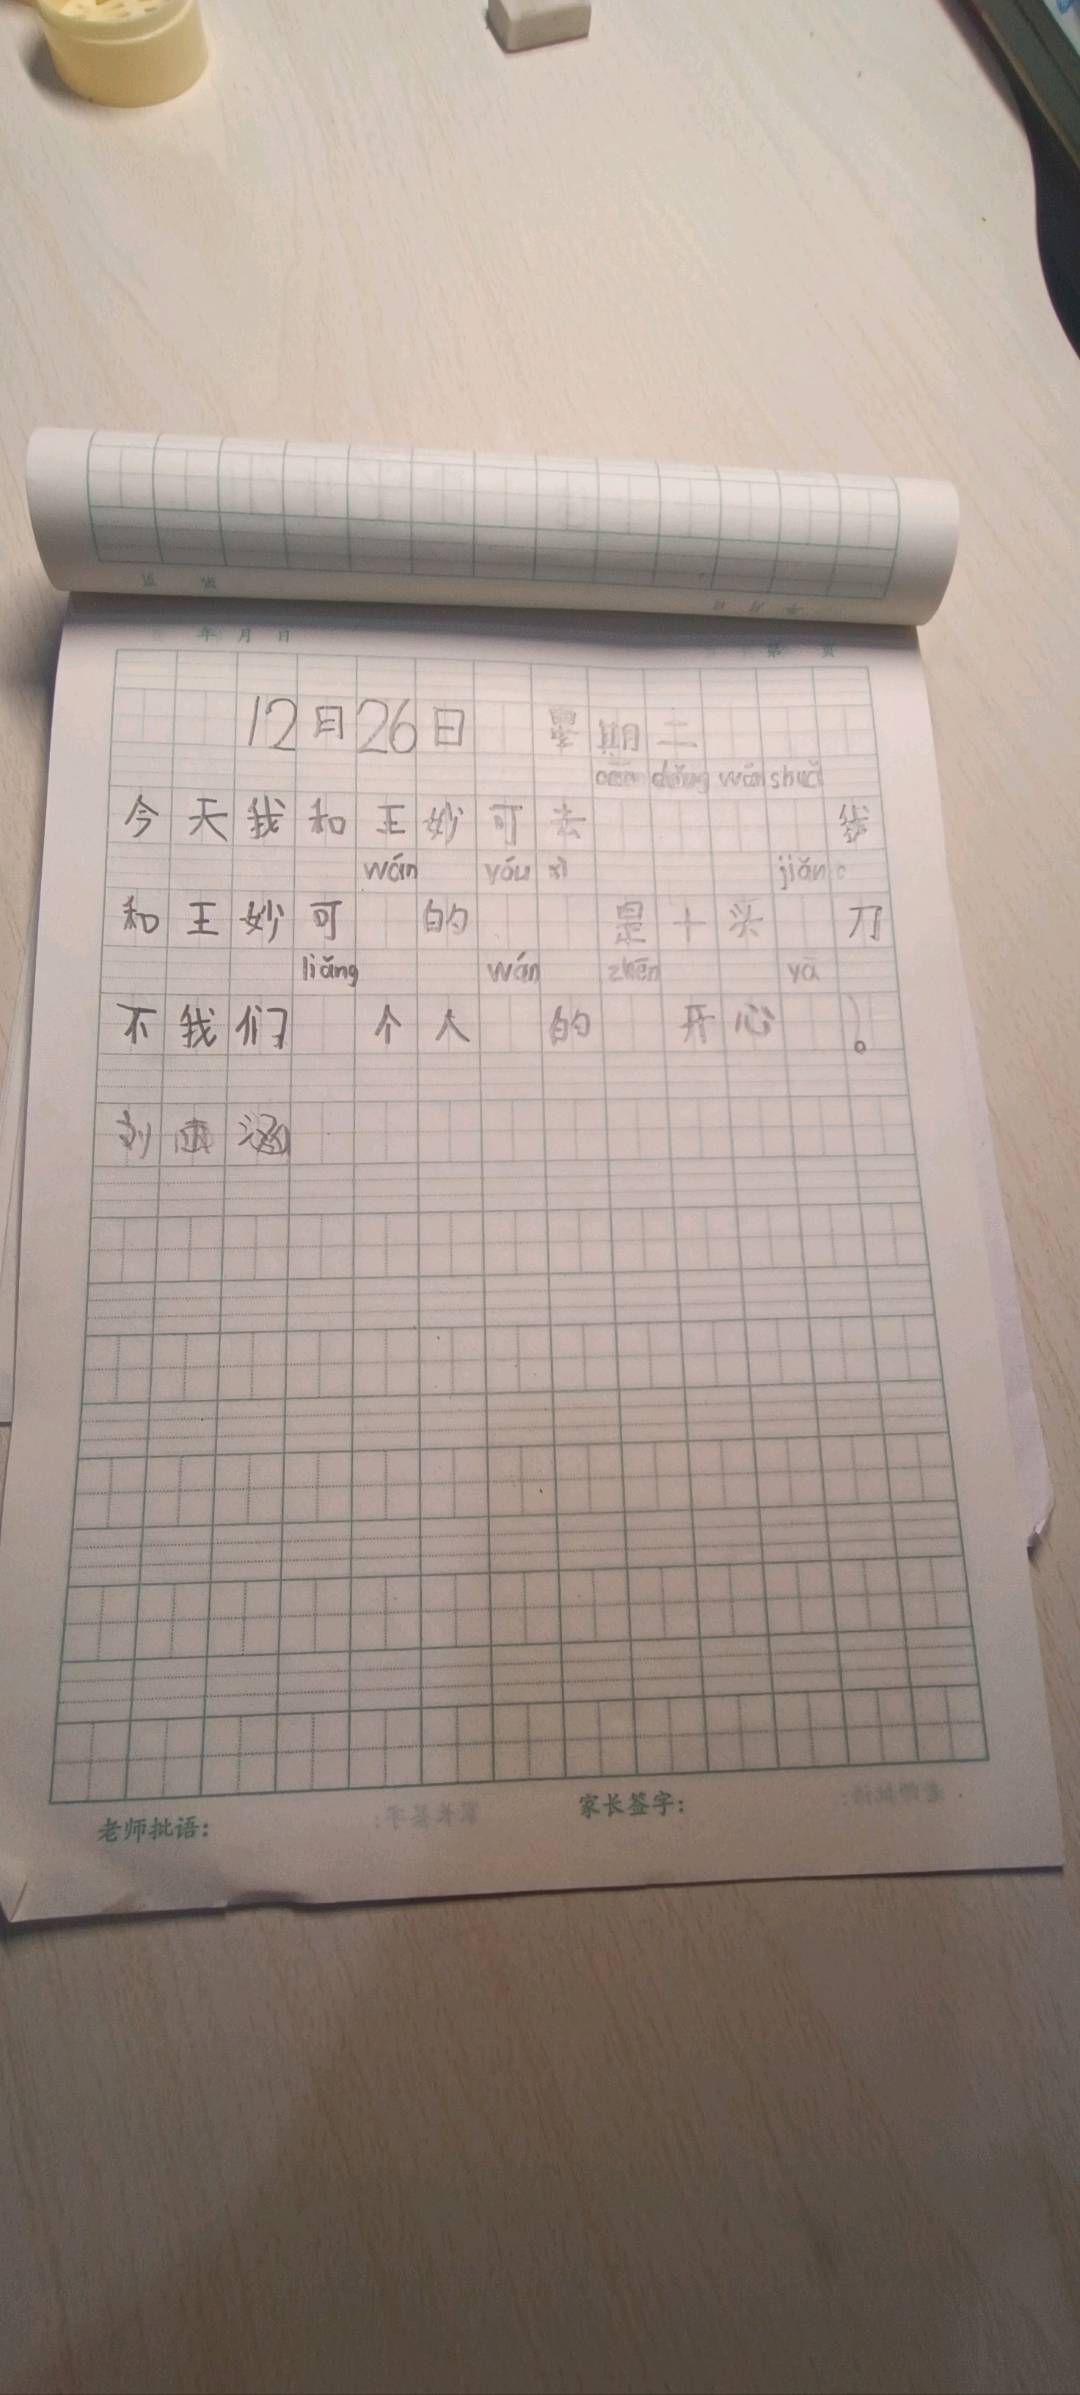 年 月 日 第 页
12月26日 星期二
dǒng wán shuǎ
今天我和王妙可去 我
wán yóu xì jiǎn
和王妙可 的 是十头 刀
liǎng wán zhēn yā
不我们 个人 的 开心 !。
刘雨涵
老师批语: 家长签字: